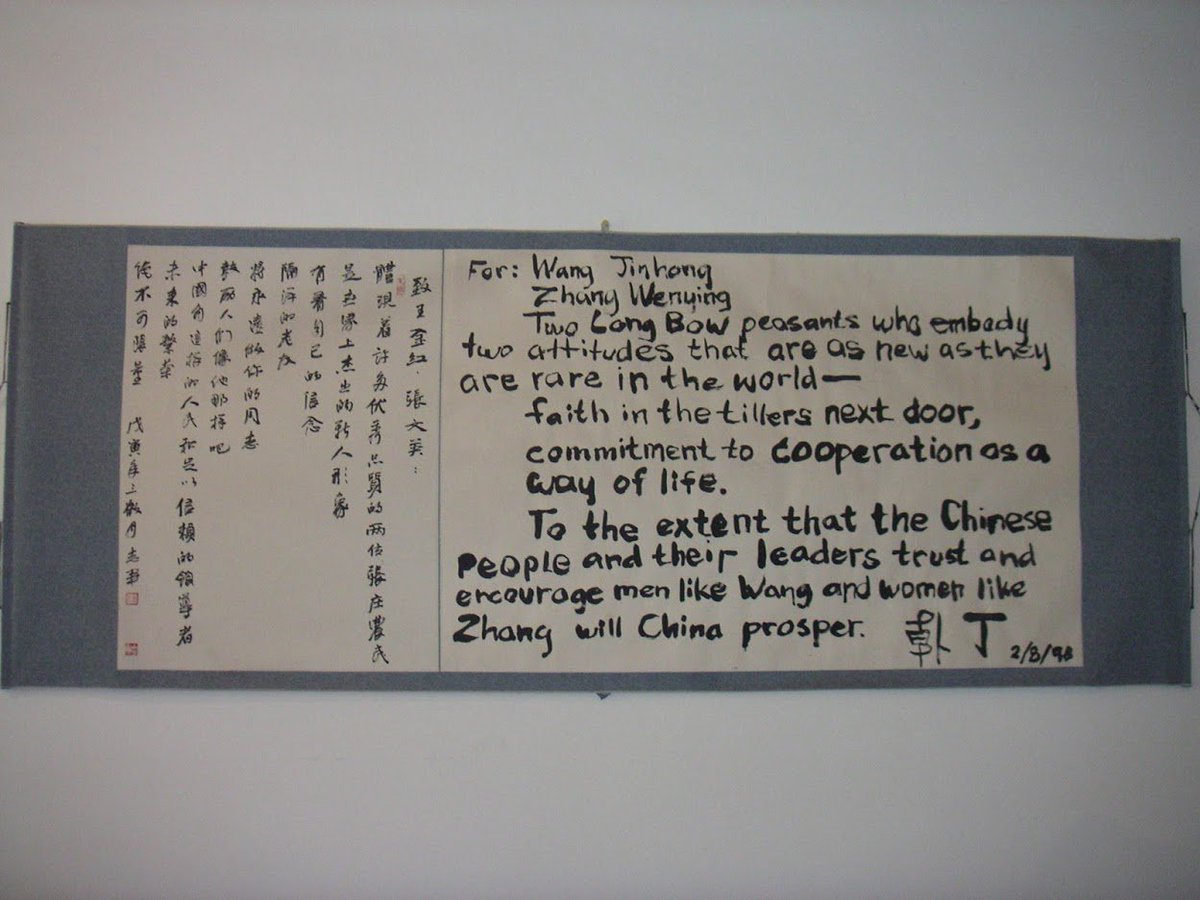 For: Wang Jinhong
Zhang Wenying
Two Long Bow peasants who embody
two attitudes that are as new as they
are rare in the world—
faith in the tillers next door,
commitment to cooperation as a
way of life.
To the extent that the Chinese
People and their leaders trust and
encourage men like Wang and women like
Zhang will China prosper.
韩丁 2/8/98
致王金红、張文英：
體現着许多优秀品質的两位張庄農民
是世界上杰出的新人形象
有着自己的信念
隔洋的老友
将永遠做你的同志
鼓励人们像他那样吧
中國有這样的人民和足以信賴的領導者
未来的繁荣
不可限量 戊寅年三月